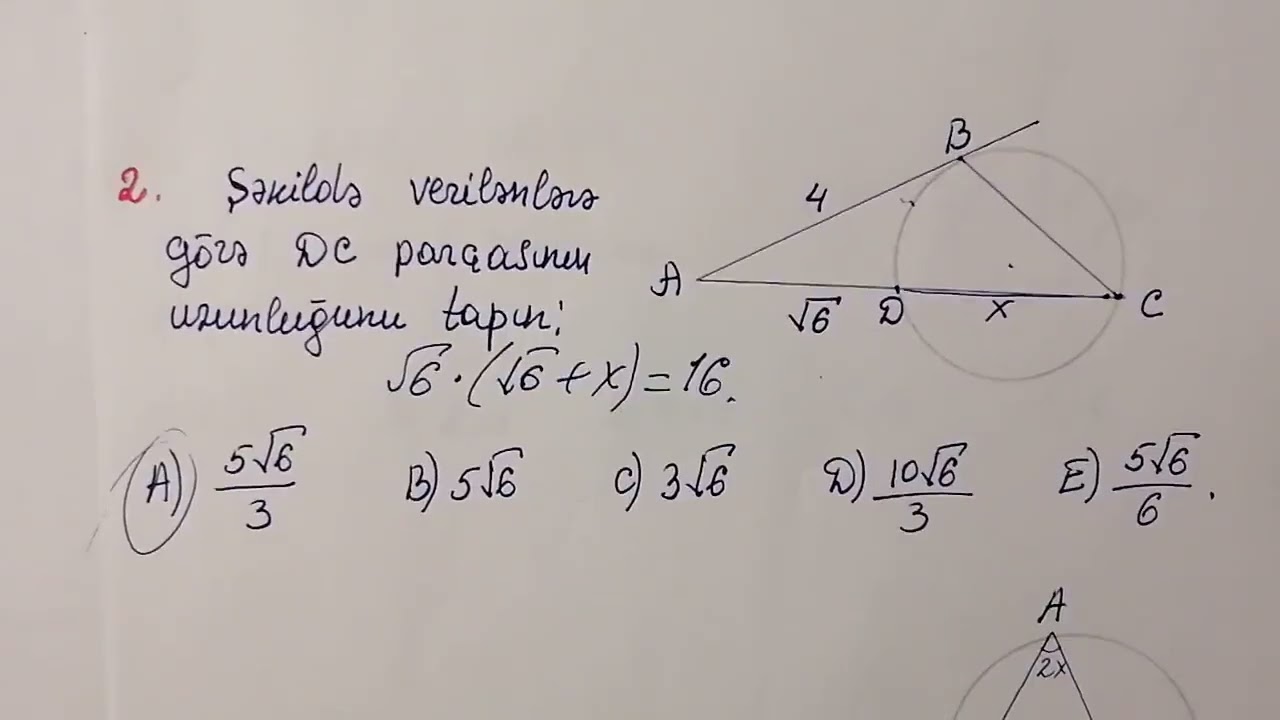 2. Şəkildə verilənlərə
görə DC parçasının
uzunluğunu tapın:
A
4
B
√6
D
x
C
√6·(√6+x)=16.
A) 5√6/3 B) 5√6 C) 3√6 D) 10√6/3 E) 5√6/6.
A
2x